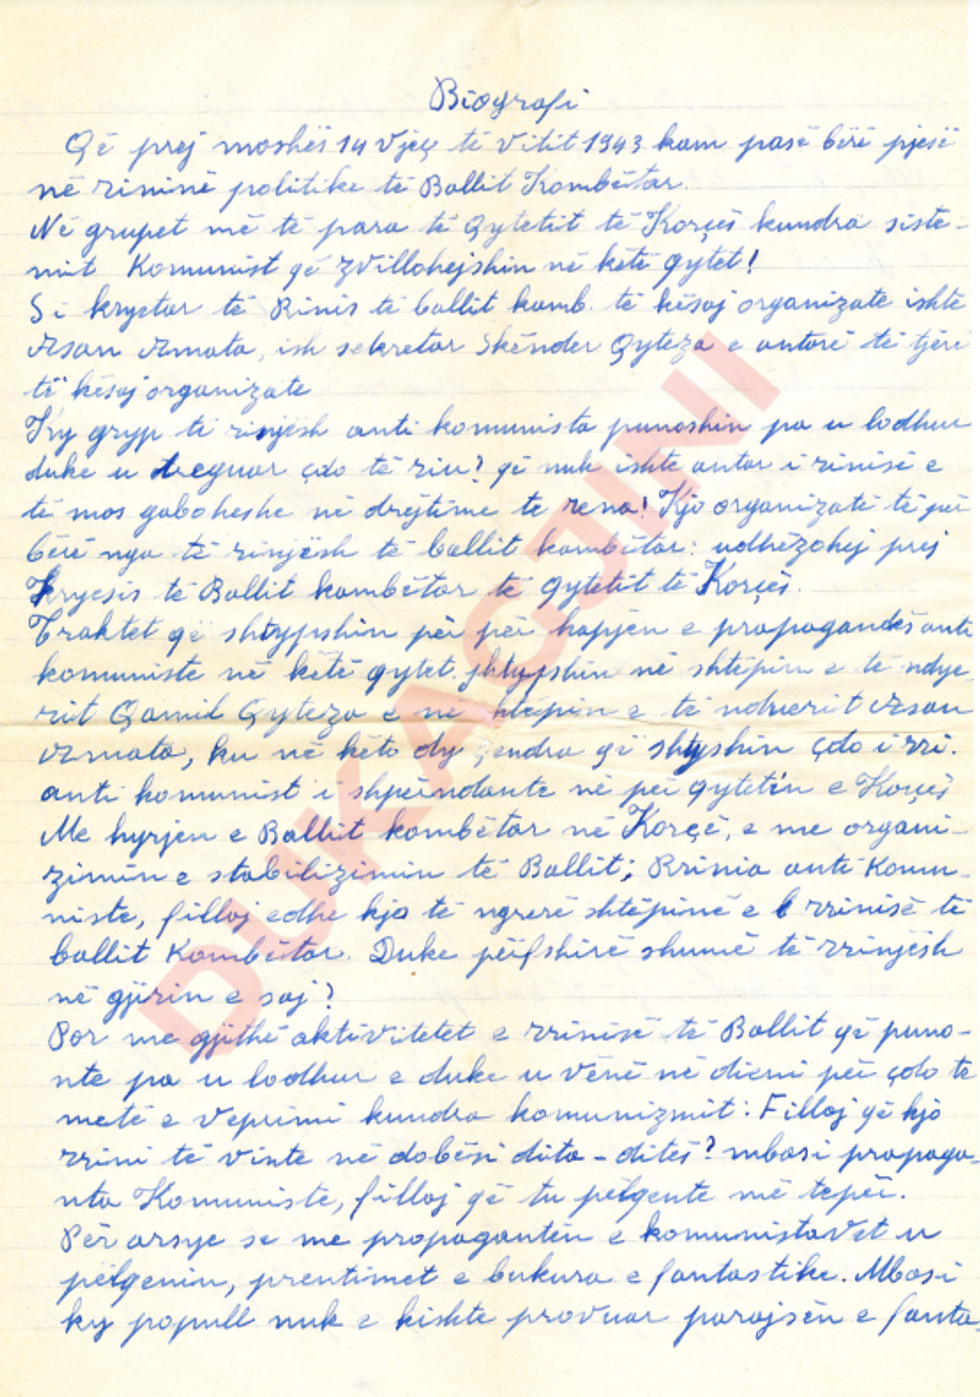 Biografi
Që prej moshës 14 vjeç të vitit 1943 kam pasë bërë pjesë
në rininë politike të Ballit Kombëtar.
Në grupet më të para të Qytetit të Korçës kundra siste-
mit Komunist që zvillohejshin në këtë qytet!
Si kryetar të Rinis të ballit komb. të kësaj organizate ishte
ish sekretar Skënder Qyteza e antorë të tjerë
të kësaj organizate
Ky gryp të rinjësh anti komunista punoshin pa u lodhur
duke u treguar çdo të riu? që nuk ishte antar i rinisë e
të mos gaboheshe në drejtime te rena! Kjo organizatë të për
bërë nga të rinjësh të ballit kombëtar: udhëzohej prej
Kryesis të Ballit kombëtar të qytetit të Korçës.
Traktet që shtypshin për për hapjen e propagandës anti
komuniste në këtë qytet. shtypshin në shtëpin e të ndje
rit Qamil Qyteza e në shtëpin e të nduerit
ku në këto dy qendra që shtyshin çdo i rri.
anti komunist i shpërndante në për qytetën e Korçës
Me hyrjen e Ballit kombëtar në Korçë, e me organi-
zimin e stabilizimin të Ballit; Rrinia anti Komu-
niste, filloj edhe kjo të ngrerë shtëpinë e rrinisë të
ballit Kombëtar. Duke përfshirë shumë të rrinjësh
në gjirin e saj?
Por me gjithë aktivitetet e rrinisë të Ballit që puno-
nte pa u lodhur e duke u vënë në dieni për çdo të
metë e veprimi kundra komunizmit: Filloj që kjo
rrini të vinte në dobësi dita-ditës? mbasi propaga-
nta Komuniste, filloj që tu pëlqente më tepër.
Për arsye se me propagantën e komunistavet u
pëlqenin, prentimet e bukura e fantastike. Mbasi
ky popull nuk e kishte provuar parajsën e fanta-
DUKAGJINI